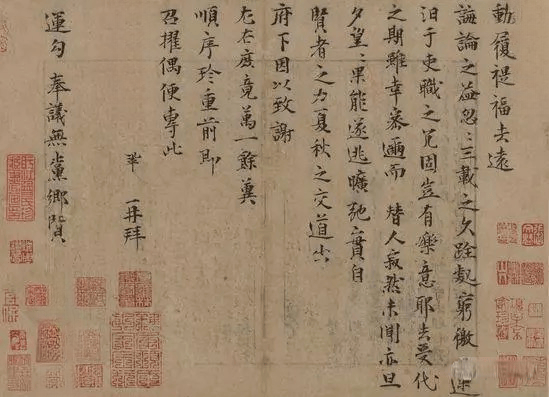 動履禔福去遠
誨論之益忽〻三載之久跧處窮徼迷
汩于吏職之冗固豈有樂意耶去受代
之期雖幸密邇而替人寂然未聞亦旦
夕望〻果能遂逃曠弛實自
賢者之力夏秋之交道出
府下因以致謝
左右庶竟萬一餘冀
順序珍重前即
召擢偶便專此
鞏再拜
運勾奉議無黨鄉賢